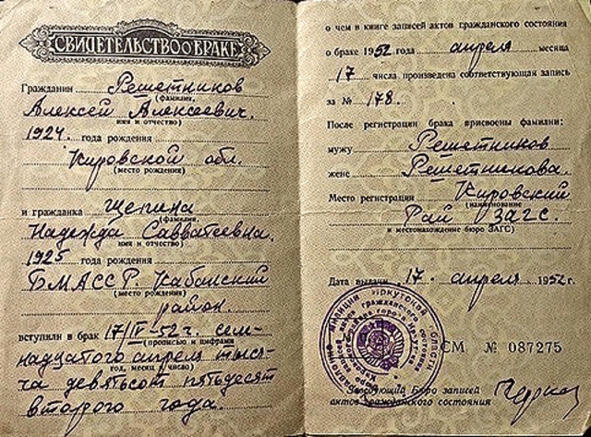 СВИДЕТЕЛЬСТВО О БРАКЕ
Гражданин Решетников
(фамилия,
Алексей Алексеевич.
имя и отчество)
1924. года рождения
Кировской обл.
(место рождения)
и гражданка Щепина
(фамилия,
Надежда Савватеевна.
имя и отчество)
1925 года рождения
БМАССР. Кабанский
(место рождения)
район.
вступили в брак 17/IV-52 г. сем-
(прописью и цифрами
надцатого апреля тыся-
год, месяц и число)
ча девятьсот пятьдесят
второго года.
о чем в книге записей актов гражданского состояния
о браке 1952 года апреля месяца
17 числа произведена соответствующая запись
за № 178.
После регистрации брака присвоены фамилии:
мужу Решетников
жене Решетникова.
Место регистрации Кировский
(наименование
Рай ЗАГС.
и местонахождение бюро ЗАГС)
Дата выдачи 17. апреля 1952 г.
СМ № 087275
Заведующий Бюро записей
актов гражданского состояния